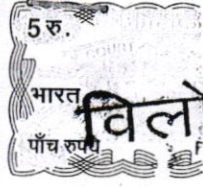 5 रु.
भारत
विलो
पाँच रुपये